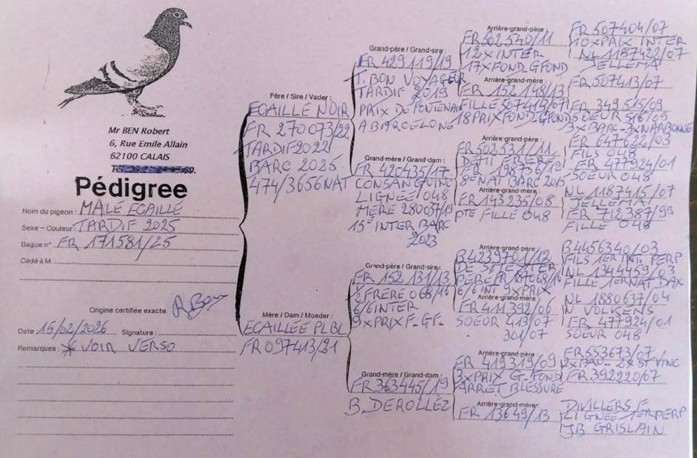 Mr BEN Robert
6, Rue Emile Allain
62100 CALAIS
Pédigree
Nom du pigeon : MALE ECAILLE
Sexe - Couleur TARDIF 2025
Bague n° FR 171581/25
Cédé à M.
Origine certifiée exacte.
Date 15/02/2026 Signature :
Remarques : * VOIR VERSO
Père / Sire / Vader :
ECAILLE NOIR
FR 270073/22
TARDIF 2022
BARC 2025
474/3656 NAT
Mère / Dam / Moeder :
ECAILLEE PLBL
FR 097413/21
Grand-père / Grand-sire :
FR 429119/19
T. BON VOYAGEUR
TARDIF 2019
PRIX DE FONTENAY
A BARCELONE
Grand-mère / Grand-dam :
FR 420435/17
CONSANGUINE
LIGNÉE 048
MERE 28005/19
15e INTER BARC
2023
Grand-père / Grand-sire :
FR 152131/13
1/2 FRÈRE 066/16
6/6 INTER
9xPRIX F-GF.
Grand-mère / Grand-dam :
FR 363445/19
B. DEROLLEZ
Arrière-grand-père :
FR 502540/11
12xINTER
17xFOND GFOND
Arrière-grand-mère :
FR 152148/13
FILLE 507419/07
18 PRIX FOND GFOND
Arrière-grand-père :
FR 502531/11
DEMI FRERE
8e NAT BARC 2015
Arrière-grand-mère :
FR 143235/08
PTE FILLE 048
Arrière-grand-père :
B4239701/12
6/6 IN 9xPRIX
Arrière-grand-mère :
FR 411392/06
SOEUR 413/07
301/07
Arrière-grand-père :
FR 419319/09
PRIX G. FOND
ARRET BLESSURE
Arrière-grand-mère :
FR 13649/13
FR 507404/07
10xPRIX INTER
NL 1187422/07
JELLEMA
FR 507413/07
FR 349515/09
SOEUR 516/09
3x BARC-3xNARBONNE
FR 647622/03
FILS 048
FR 477924/01
SOEUR 048
NL 1187415/07
JELLEMA
FR 712387/99
FILLE 048
B4456340/03
FILS 1ER INL PERP
NL 1344459/03
FILLE 1ER NAT DAX
NL 1880637/04
FR 477924/01
SOEUR 048
FR 553673/07
2xPARC-2xST VINC
FR 392220/07
DIVILLERS F
LIGNÉE 1ER PERP
JB GRISLAIN